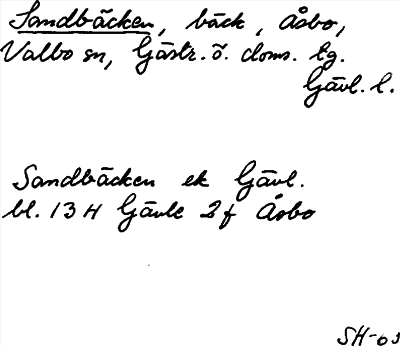 Sandbäcken, bäck, Åsbo,
Valbo sn, Gästr. ö. doms. lg.
Gävl. l.
Sandbäcken ek Gävl.
bl. 13 H Gävle 2f Åsbo
SH-63